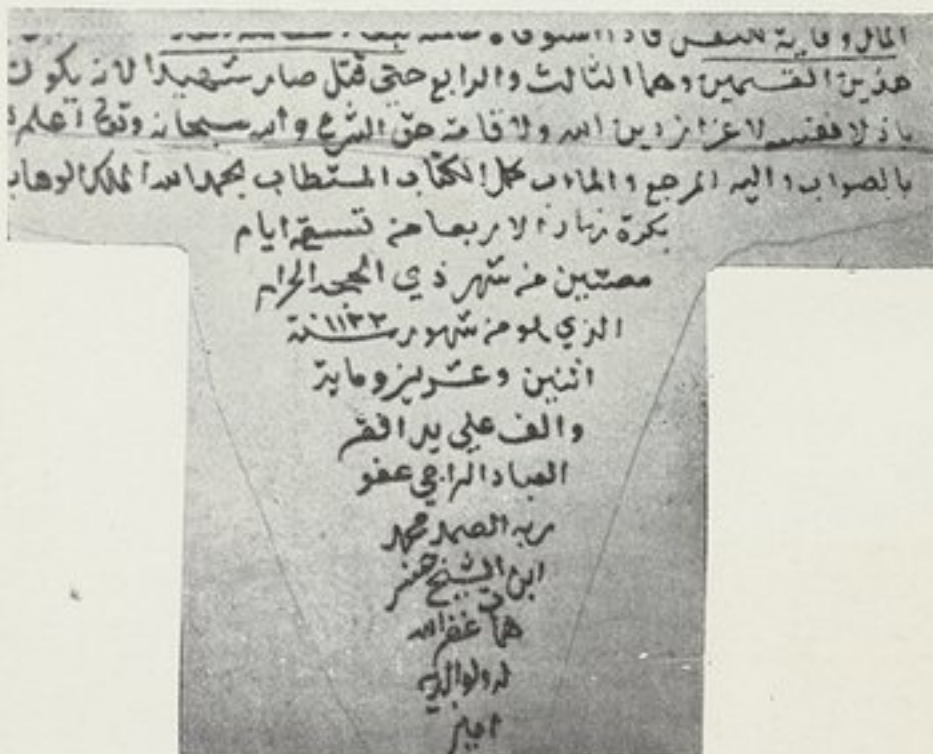 المال وقاية للنفس فاذا استوفا
هذين القسمين وهما الثالث والرابع حتى قتل صار شهيدا لانه يكون
باذلا نفسه لاعزاز دين الله ولاقامة حق الشرع والله سبحانه وتعالى اعلم
بالصواب واليه المرجع والماب كمل الكتاب المستطاب بحمد الله الملك الوهاب
بكرة نهار الاربعا من تسعة ايام
مضين من شهر ذي الحجة الحرام
الذي هو من شهور سنة ١١٢٢
اثنين وعشرين وماية
والف على يد افقر
العباد الراجي عفو
ربه الصمد محمد
ابن الشيخ
همات غفر الله
له ولوالديه
امين